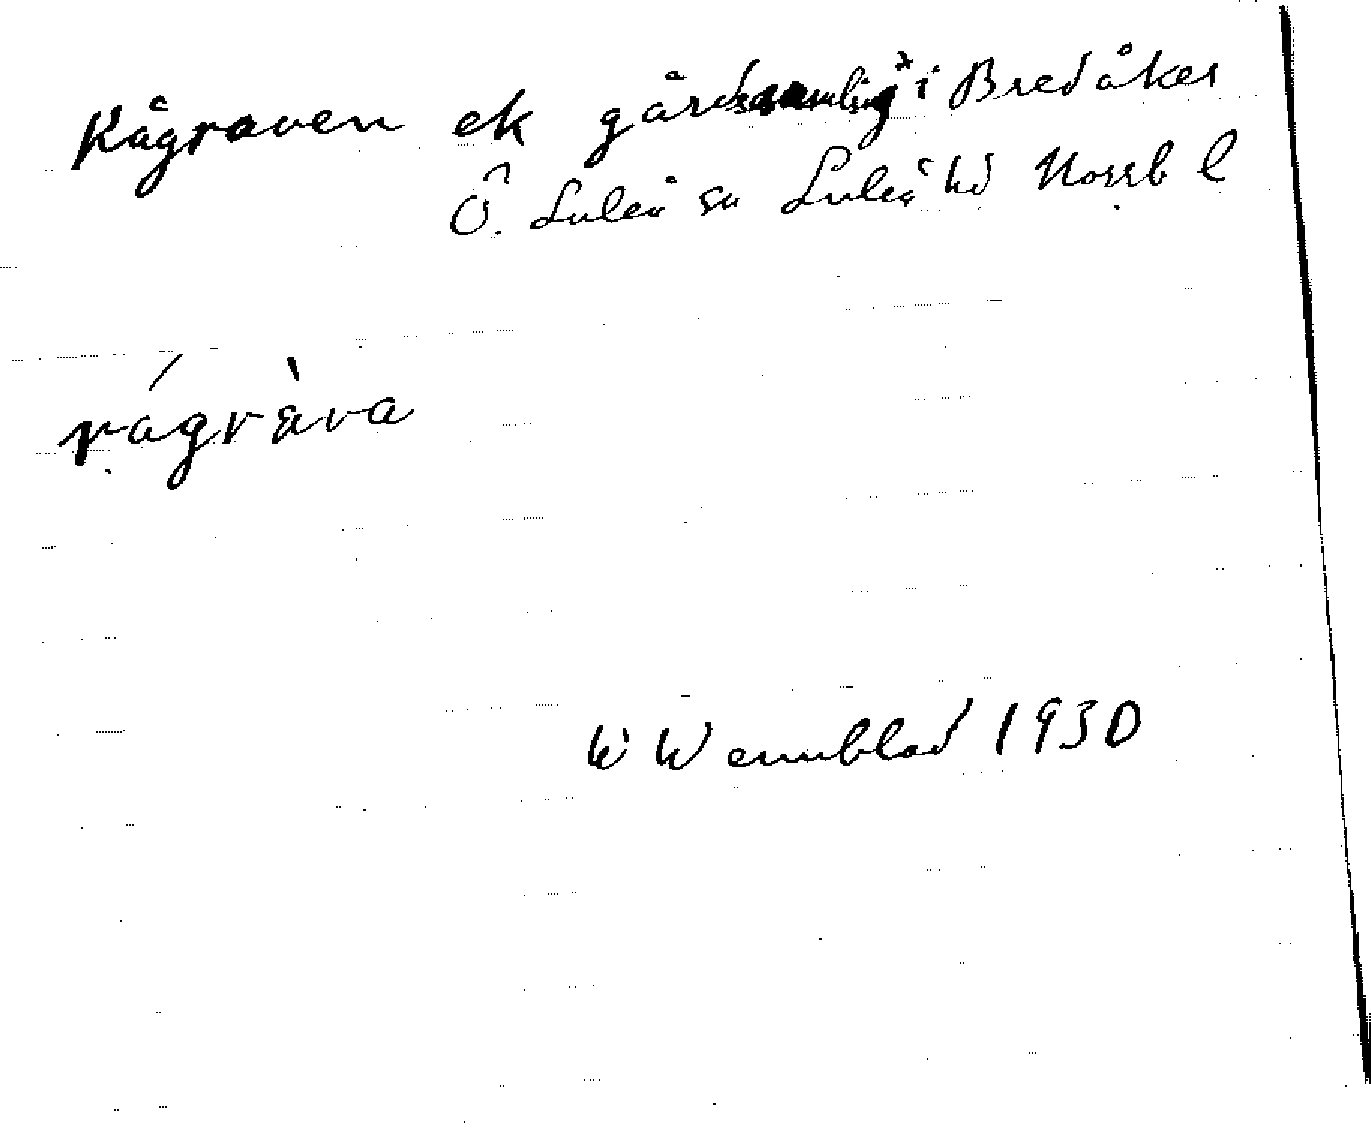 Rågraven ek gårdssamling i Bredåker
Ö. Luleå sn Luleå hd Norrb l
rágràva
W Wennblad 1930